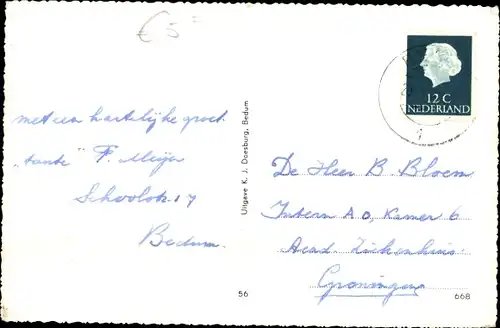 € 5
met een hartelijke groet
„tante" F. Meijer
Schoolstr. 17
Bedum.
Uitgave K. J. Doesburg, Bedum
12 C
NEDERLAND
De Heer B. Bloem
Intern A 0, Kamer 6
Acad. Ziekenhuis.
Groningen
56
668